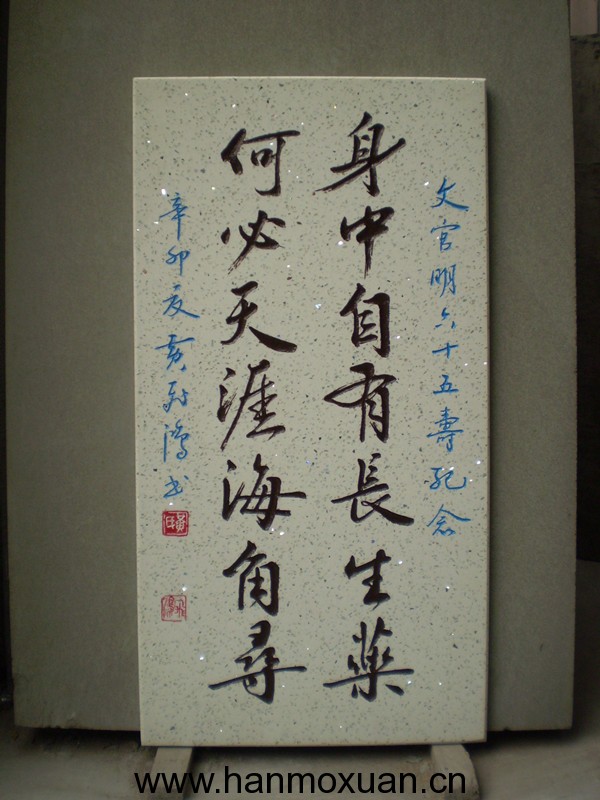 文官明六十五壽記念
身中自有長生藥
何必天涯海角尋
辛卯夏黃 鴻书
www.hanmoxuan.cn